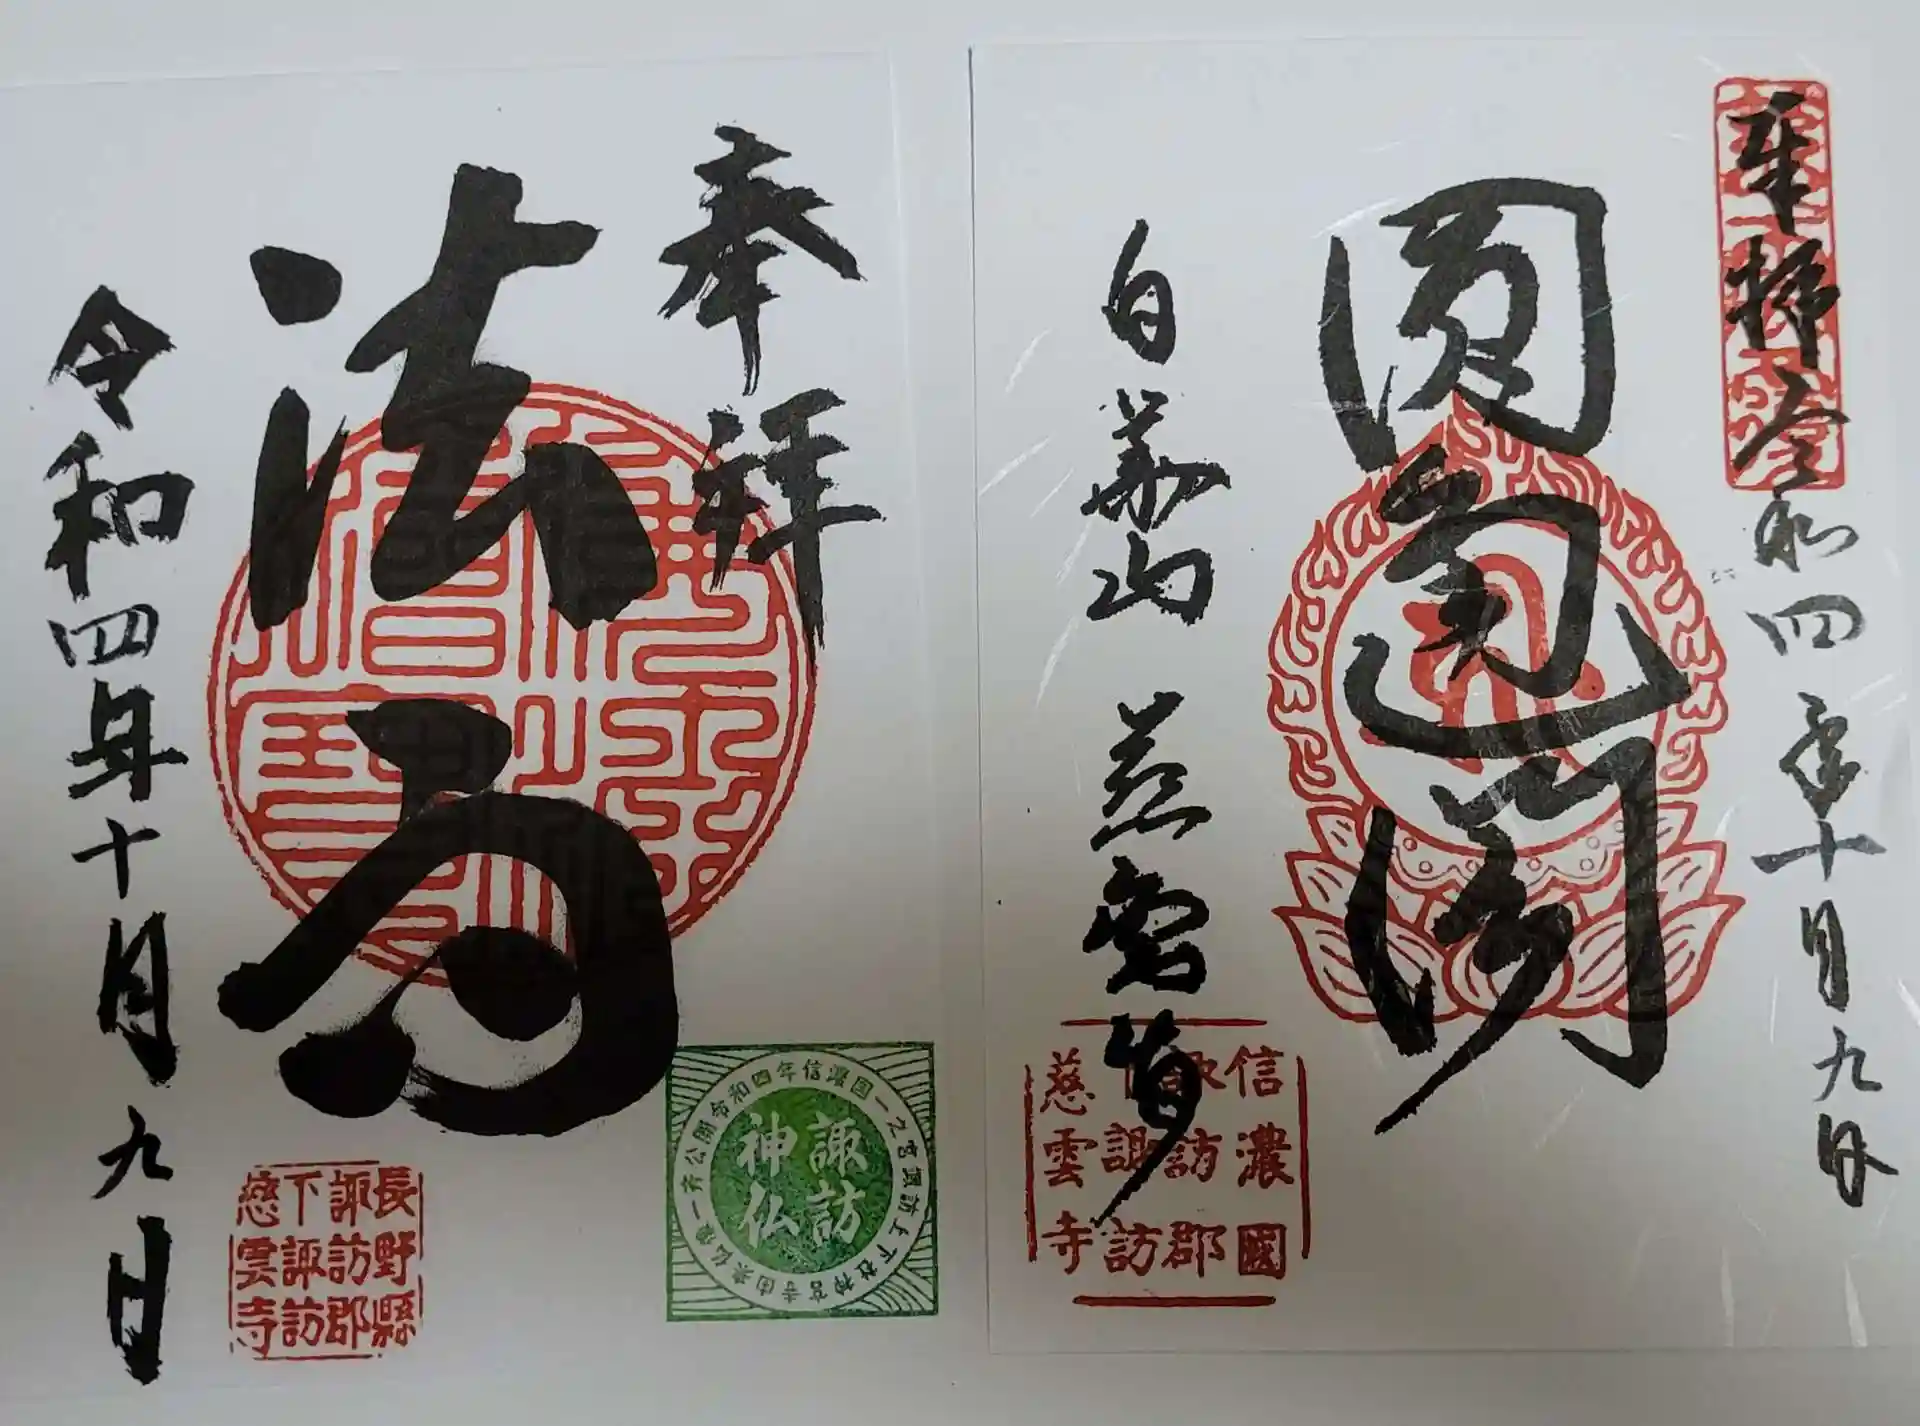 奉拝 令和四年十月九日
圓通閣
白華山 慈雲寺
信濃國
諏訪郡
下諏訪
慈雲寺
奉拝
法雨
令和四年十月九日
令和四年信濃国一之宮諏訪上下社神宮寺由来仏像一斉公開
諏訪
神仏
長野縣
諏訪郡
下諏訪
慈雲寺